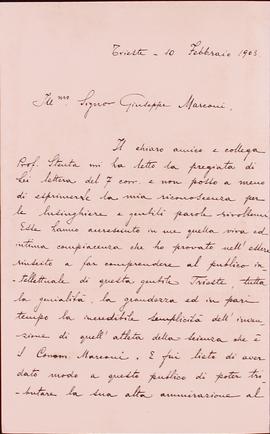 Trieste - 10 Febbraio 1903.
Ill.mo Signor Giuseppe Marconi.
Il chiaro amico e collega
Prof. Stenta mi ha letto la pregiata di
Lei lettera del 7 corr. e non posso a meno
di esprimerle la mia riconoscenza per
le lusinghiere e gentili parole rivoltemi.
Esse hanno accresciuto in me quella viva ed
intima compiacenza che ho provato nell'essere
riuscito a far comprendere al pubblico in-
tellettuale di questa gentile Trieste, tutta
la genialità, la grandezza ed in pari
tempo la incredibile semplicità dell'inven-
zione di quell'atleta della scienza che è
il Comm. Marconi. E fui lieto di aver
dato modo a questo pubblico di poter tri-
butare la sua alta ammirazione al